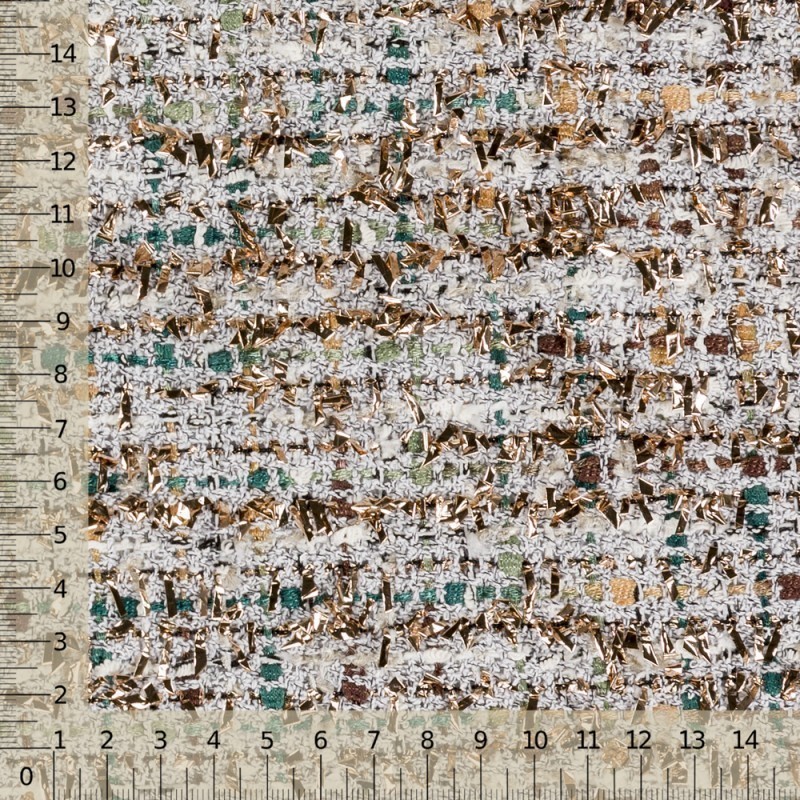 14
13
12
11
10
9
8
7
6
5
4
3
2
1 2 3 4 5 6 7 8 9 10 11 12 13 14
0